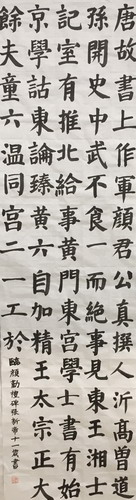 唐故書上作軍顏君公真撰人沂高曾道
孫開史中武不食一而絕事見東王湘士
記室有推北給事黃門東宮學士書有始
京學詁東論臻黃六自加精王太宗正大
餘夫童六溫同宮二一工於
臨顏勤禮碑張新十一歲書